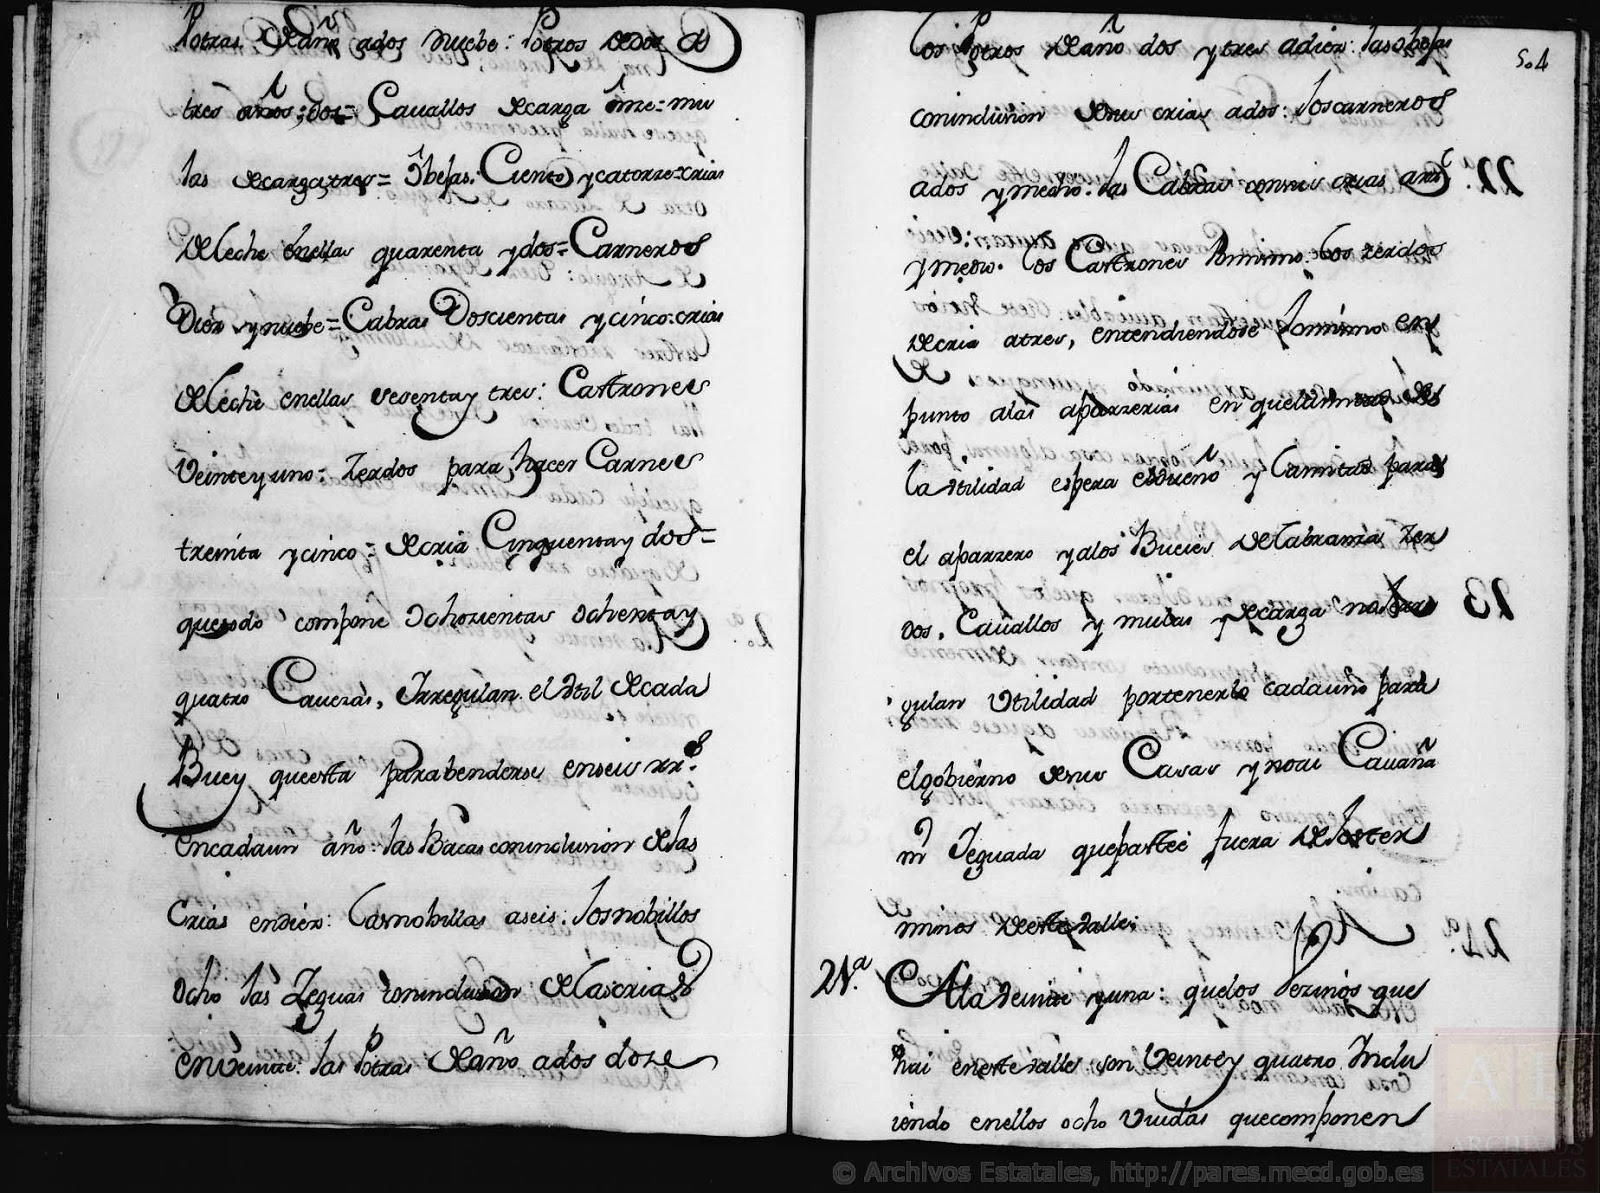 Potras de año ados nuebe: Potros de dos a
tres años; dos= Cavallos de carga = mu
las de carga, tres= Obejas. Ciento y catorze= crias
de leche en ellas quarenta y dos= Carneros
Diez y nuebe= Cabras Doscientas y cinco= crias
de leche en ellas sesenta y tres: Castrones
Veinte y uno: Zerdos para hacer Carnes
treinta y cinco= de cria Cinquenta y dos=
que todo compone Ochozientas ochenta y
quatro Cavezas, Y rregulan el Util de cada
Buey que esta para benderse en seis rr.s
en cada un año: las Bacas con inclusion de las
Crias en diez: las nobillas a seis. los nobillos
ocho las Yeguas con inclusion de las crias
en veinte: las Potras de año a dos doze
los Potros de año dos y tres a diez: las obejas
504
con inclusion de sus crias ados: los carneros
ados y medio. las Cabras con sus crias a
y medio. los Castrones lo mismo. los zerdos
de cria atres, entendiendose lo mismo en
punto alas aparzerias en que la mitad de
la utilidad es para el dueño y la mitad para
el aparzero y alos Bueies de labranza Zer
dos, Cavallos y mulas de carga no les re
gulan Utilidad por tenerlo cada uno para
el gobierno de sus Casas y no ai Cavaña
ni Yeguada que paste fuera de los ter
minos de este valle;
21.a A la veinte y una: que los Vezinos que
hai en este valle son Veinte y quatro Inclu
iendo en ellos ocho Viudas que componen
© Archivos Estatales, http://pares.mecd.gob.es
ARCHIVOS
ESTATALES